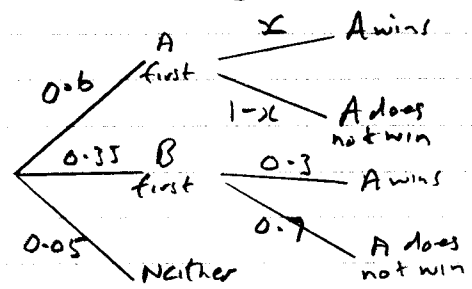 x A wins
A
first
0.6
1-x A does
not win
0.35 B
first
0.3 A wins
0.7 A does
not win
0.05 Neither